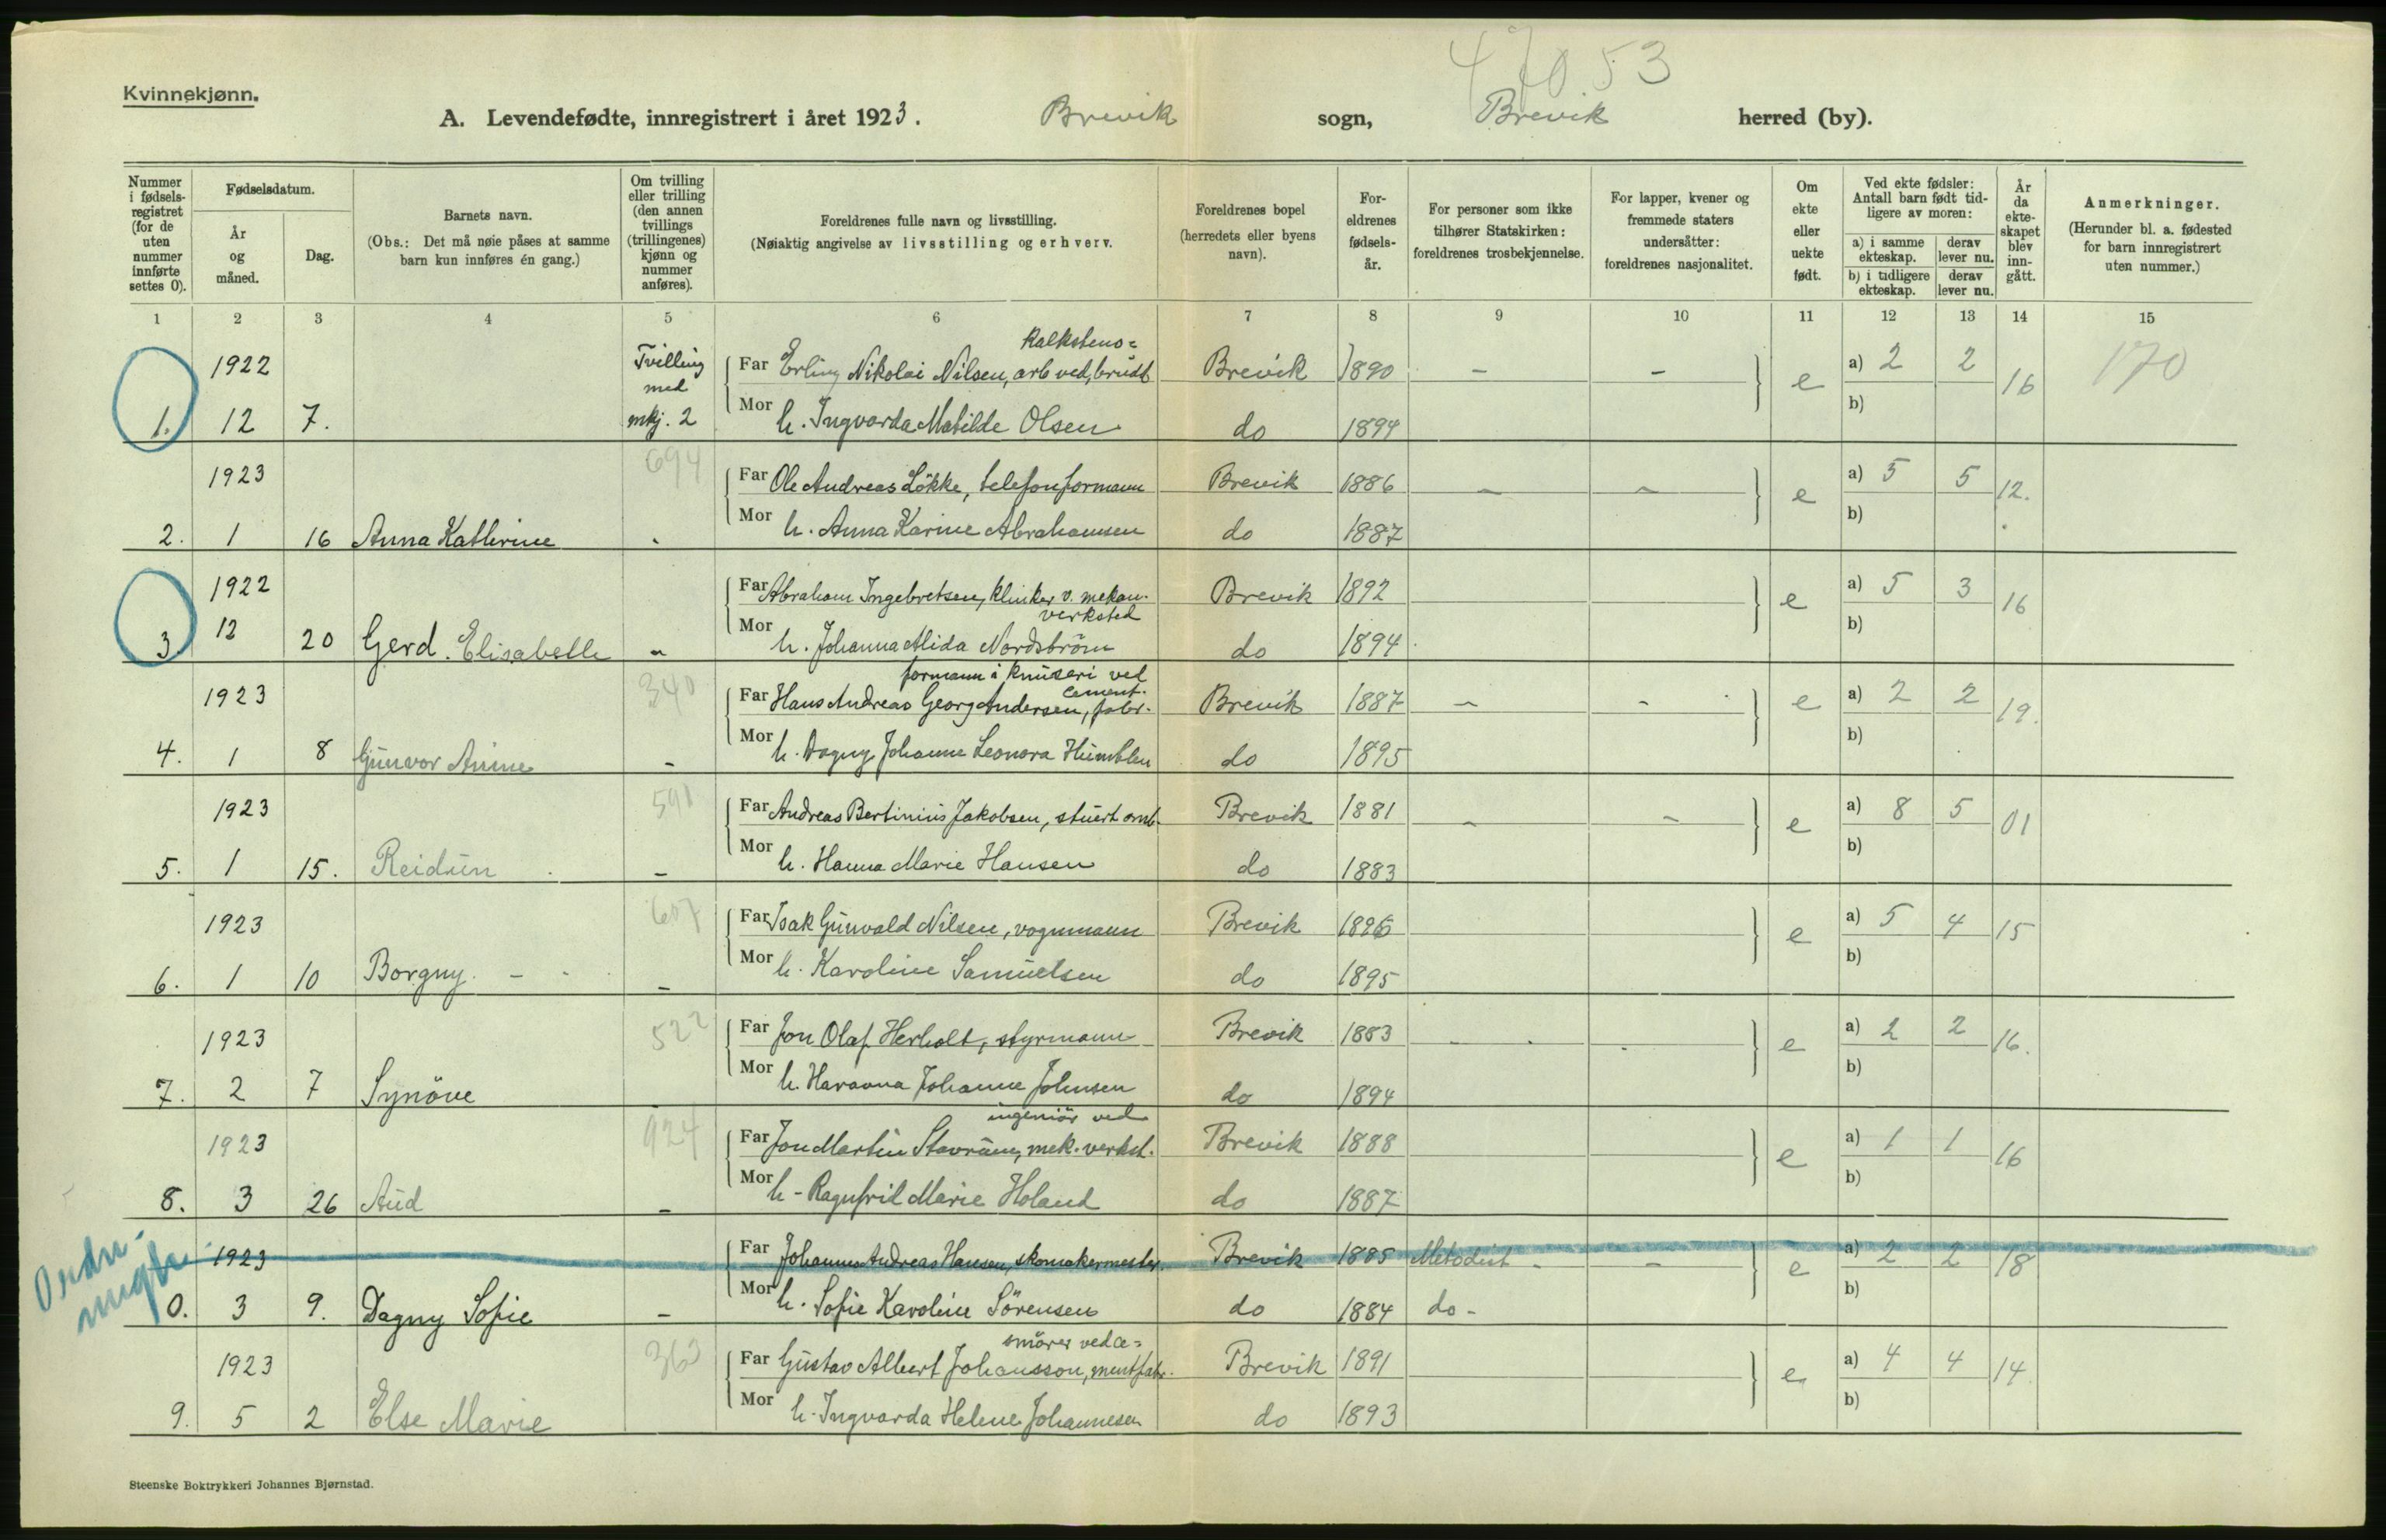 47053
Kvinnekjønn.
A. Levendefødte, innregistrert i året 1923. Brevik sogn, Brevik herred (by).
Nummer i fødsels-registret (for de uten nummer innførte settes 0).
Fødselsdatum.
År og måned.
Dag.
Barnets navn.
(Obs.: Det må nøie påses at samme barn kun innføres én gang.)
Om tvilling eller trilling (den annen tvillings (trillingenes) kjønn og nummer anføres).
Foreldrenes fulle navn og livsstilling.
(Nøiaktig angivelse av livsstilling og erhverv.
Foreldrenes bopel (herredets eller byens navn).
For-eldrenes fødsels-år.
For personer som ikke tilhører Statskirken: foreldrenes trosbekjennelse.
For lapper, kvener og fremmede staters undersåtter: foreldrenes nasjonalitet.
Om ekte eller uekte født.
Ved ekte fødsler: Antall barn født tid-ligere av moren:
a) i samme ekteskap. derav lever nu.
b) i tidligere ekteskap. derav lever nu.
År da ekte-skapet blev inn-gått.
Anmerkninger.
(Herunder bl. a. fødested for barn innregistrert uten nummer.)
1 2 3 4 5 6 7 8 9 10 11 12 13 14 15
kalkstens=
1922 Tvilling med Far Erling Nikolai Nilsen, arb ved, brudt Brevik 1890 - - e a) 2 2 16 170
1. 12 7. mkj. 2 Mor h. Ingvarda Matilde Olsen do 1894 b)
1923 694 Far Ole Andreas Løkke, telefonformann Brevik 1886 - - e a) 5 5 12.
2. 1 16 Anna Kathrine - Mor h. Anna Karine Abrahamsen do 1887 b)
1922 Far Abraham Ingebretsen, klinker v. mekan. verksted Brevik 1892 e a) 5 3 16
3 12 20 Gerd Elisabeth - Mor h. Johanna Alida Nordstrøm do 1894 b)
formann i knuseri ved cement.
1923 340 Far Hans Andreas Georg Andersen, fabr. Brevik 1887 - - e a) 2 2 19.
4. 1 8 Gunvor Anine - Mor h. Dagny Johanne Leonora Humblen do 1895 b)
1923 591 Far Andreas Bertinius Jakobsen, stuert omb. Brevik 1881 - - e a) 8 5 01
5. 1 15. Reidun - Mor h. Hanna Marie Hansen do 1883 b)
1923 607 Far Isak Gunvald Nilsen, vognmann Brevik 1896 e a) 5 4 15
6. 1 10 Borgny - Mor h. Karoline Samuelsen do 1895 b)
1923 522 Far Jon Olaf Herholt, styrmann Brevik 1883 - - e a) 2 2 16.
7. 2 7 Synöve Mor h. Havanna Johanne Johnsen do 1894 b)
ingeniör ved
1923 924 Far Jon Martin Stavrum, mek. verkst. Brevik 1888 e a) 1 1 16
8. 3 26 Aud - Mor h. - Ragnfrid Marie Holand do 1887 b)
1923 Far Johannes Andreas Hansen, skomakermester. Brevik 1885 Metodist - - e a) 2 2 18
0. 3 9. Dagny Sofie - Mor h. Sofie Karoline Sörensen do 1884 do - b)
smörer ved ce=
1923 363 Far Gustav Albert Johansson, mentfabr. Brevik 1891 e a) 4 4 14
9. 5 2 Else Marie Mor h. Ingvarda Helene Johannesen do 1893 b)
Steenske Boktrykkeri Johannes Bjørnstad.